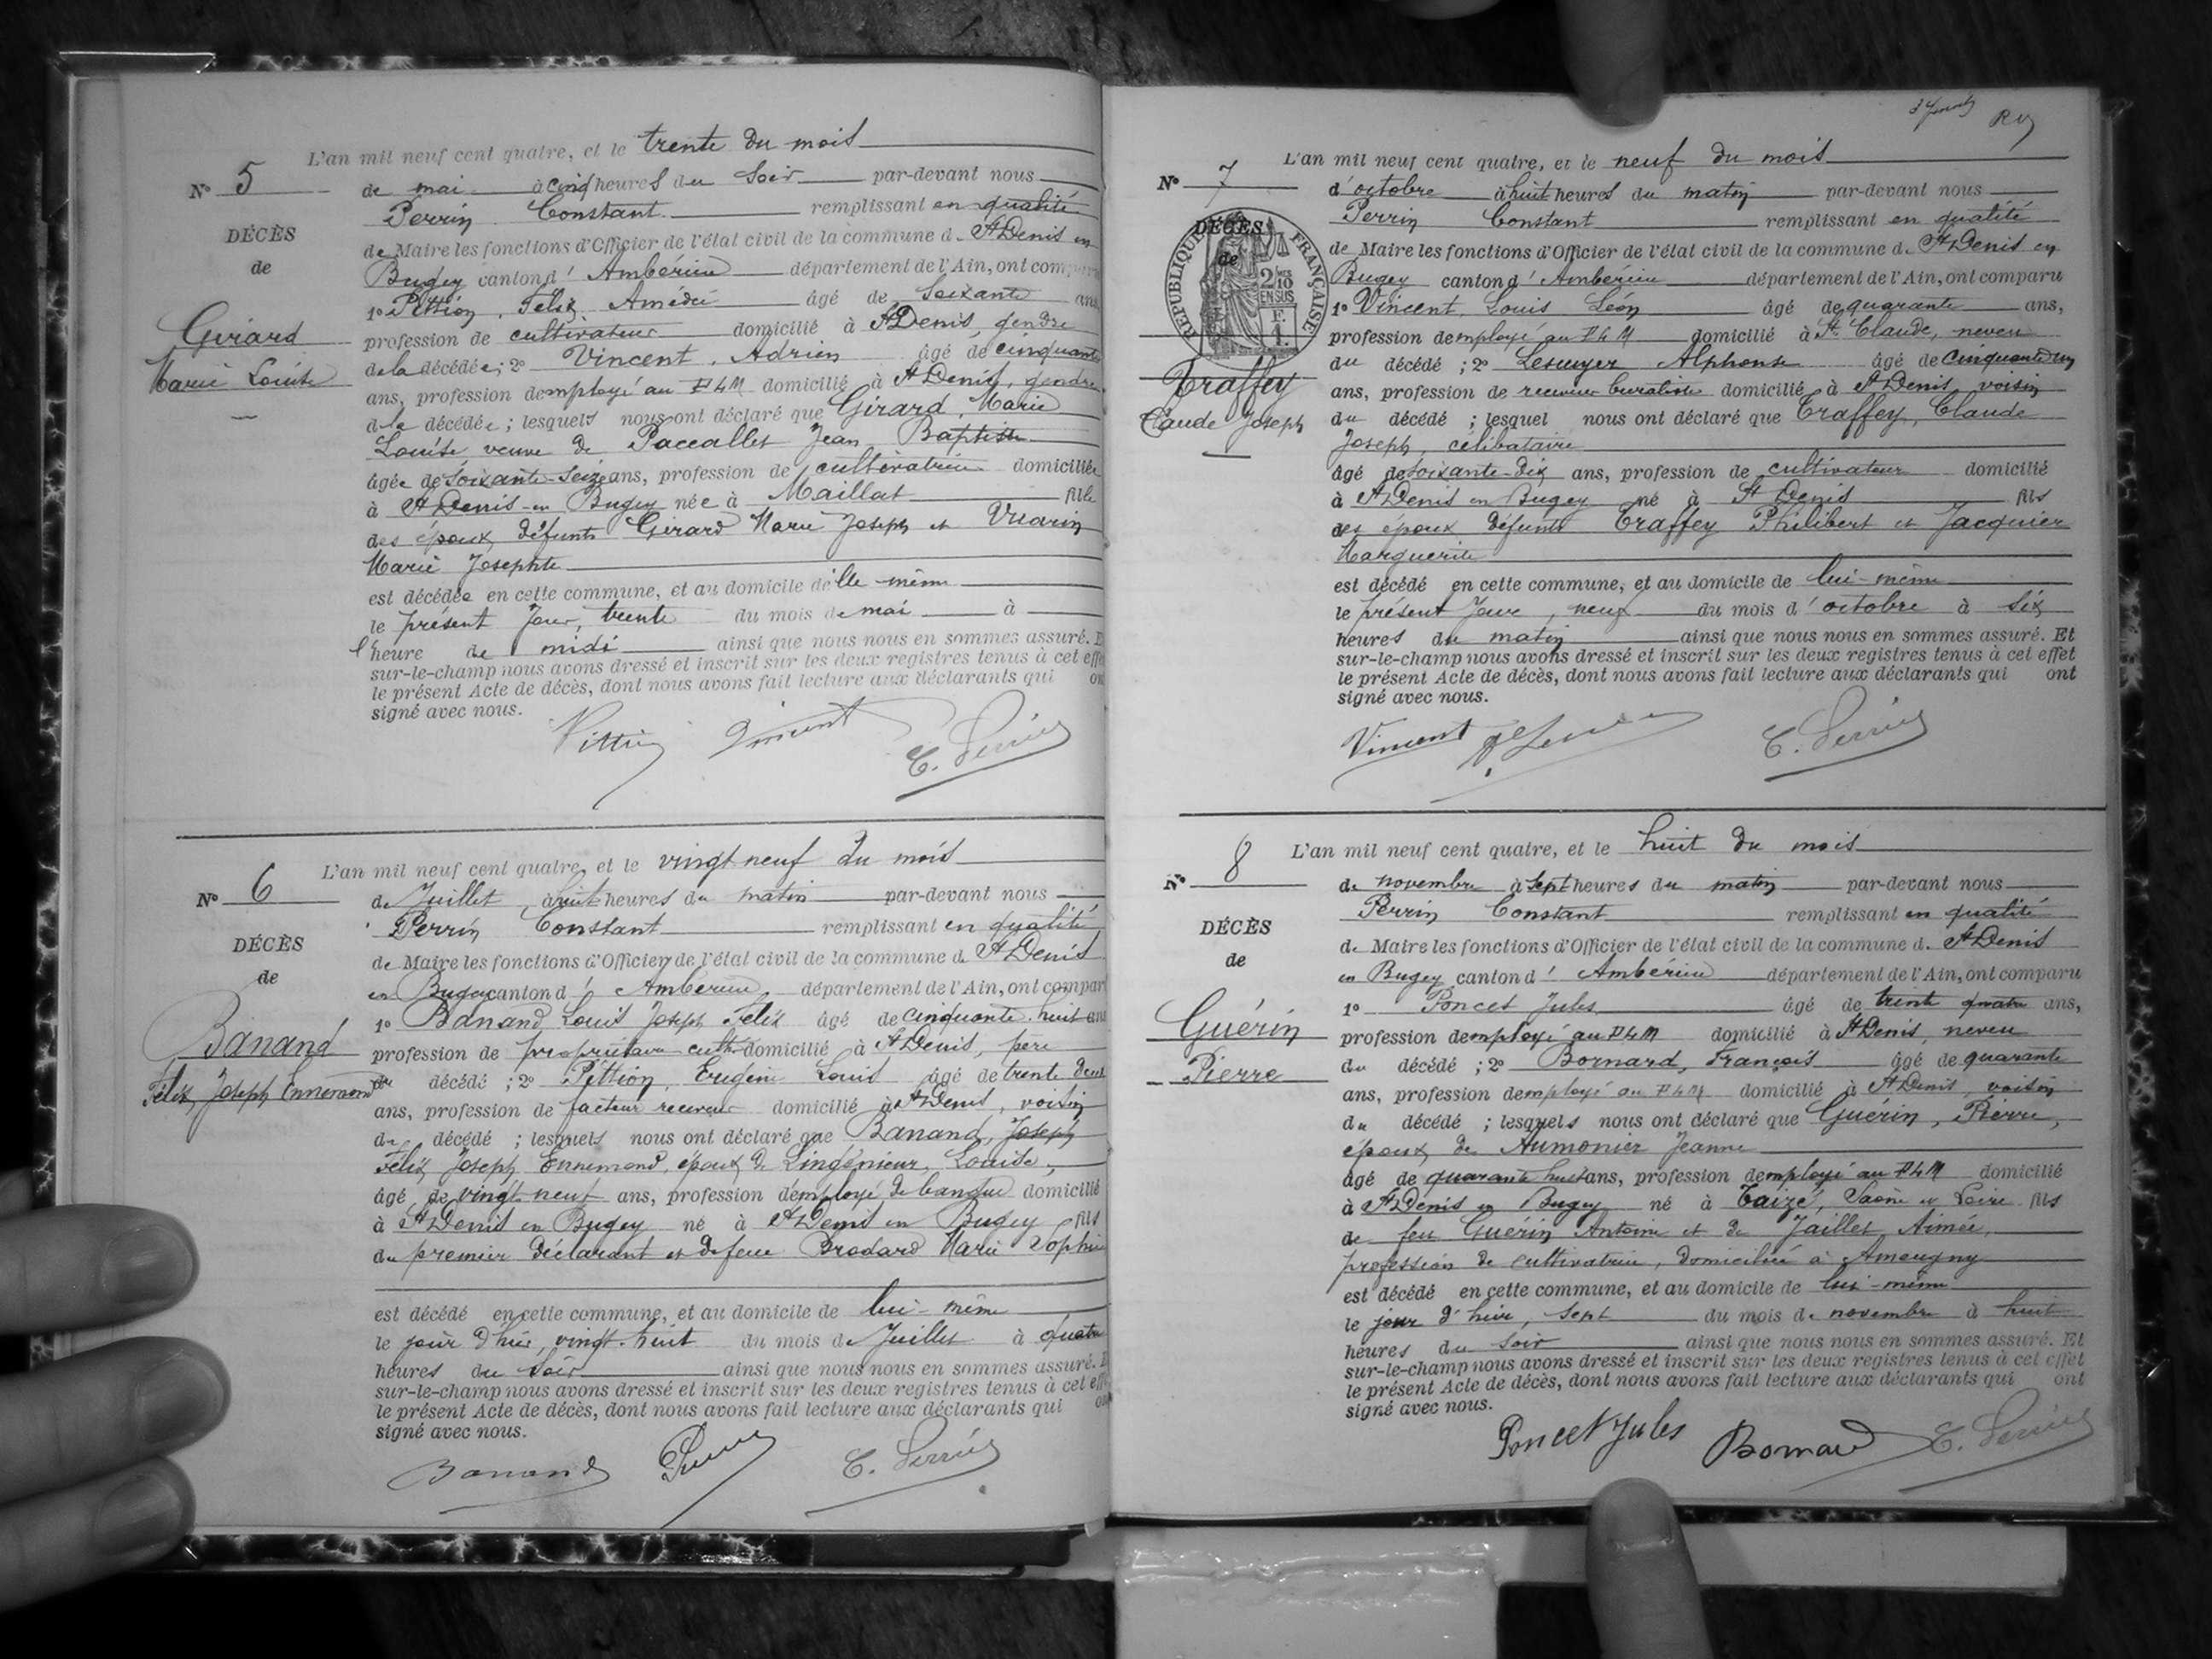 L'an mil neuf cent quatre, et le trente du mois
N° 5
de mai à cinq heures du soir par-devant nous
Perrin Constant remplissant en qualité
DÉCÈS
de Maire les fonctions d'Officier de l'état civil de la commune d. St Denis en
de
Bugey canton d' Ambérieu département de l'Ain, ont comparu
1° Pittion, Félix Amédée âgé de soixante ans
Girard
profession de cultivateur domicilié à St Denis, gendre
Marie Louise
de la décédée; 2° Vincent, Adrien âgé de cinquante
ans, profession d'employé au PLM domicilié à St Denis, gendre
d la décédée; lesquels nous ont déclaré que Girard, Marie
Louise, veuve de Paccallet Jean Baptiste
âgée de soixante-seize ans, profession de cultivatrice domiciliée
à St Denis-en Bugey née à Maillat fille
des époux défunts Girard Marie Joseph et Vuarin
Marie Josephte
est décédée en cette commune, et au domicile d'elle-même
le présent jour, trente du mois de mai à
l'heure de midi ainsi que nous nous en sommes assuré. E
sur-le-champ nous avons dressé et inscrit sur les deux registres tenus à cet effe
le présent Acte de décès, dont nous avons fait lecture aux déclarants qui on
signé avec nous.
Pittion Vincent C. Perrin
L'an mil neuf cent quatre, et le vingt neuf du mois
N° 6
de Juillet, à huit heures du matin par-devant nous
Perrin Constant remplissant en qualité
DÉCÈS
de Maire les fonctions d'Officier de l'état civil de la commune d. St Denis
de
en Bugey canton d' Ambérieu département de l'Ain, ont compar
1° Banand Louis Joseph Félix âgé de cinquante-huit ans
Banand
profession de propriétaire cult. domicilié à St Denis, père
Félix Joseph Ennemond
du décédé; 2° Pittion, Eugène Louis âgé de trente deux
ans, profession de facteur receveur domicilié à St Denis, voisin
du décédé; lesquels nous ont déclaré que Banand, Joseph
Félix Joseph Ennemond, époux de Lingénieur, Louise,
âgé de vingt-neuf ans, profession d'employé de banque domicilié
à St Denis en Bugey né à St Denis en Bugey fils
du premier déclarant et de feue Brodard Marie Sophie
est décédé en cette commune, et au domicile de lui-même
le jour d'hier, vingt-huit du mois de Juillet à quatre
heures du soir ainsi que nous nous en sommes assuré. E
sur-le-champ nous avons dressé et inscrit sur les deux registres tenus à cet eff
le présent Acte de décès, dont nous avons fait lecture aux déclarants qui on
signé avec nous.
Banand C. Perrin
L'an mil neuf cent quatre, et le neuf du mois
N° 7
d'octobre à huit heures du matin par-devant nous
Perrin Constant remplissant en qualité
DÉCÈS
de Maire les fonctions d'Officier de l'état civil de la commune d. St Denis en
de
RÉPUBLIQUE FRANÇAISE
2/10 EN SUS
F. 1.
Bugey canton d' Ambérieu département de l'Ain, ont comparu
1° Vincent, Louis Léon âgé de quarante ans,
profession d'employé au PLM domicilié à St Claude, neveu
du décédé; 2° Lescuyer Alphonse âgé de cinquante un
Traffey
ans, profession de receveur buraliste domicilié à St Denis voisin
Claude Joseph
du décédé; lesquel nous ont déclaré que Traffey, Claude
Joseph, célibataire
âgé de soixante-dix ans, profession de cultivateur domicilié
à St Denis en Bugey né à St Denis fils
des époux défunts Traffey Philibert et Jacquier
Marguerite
est décédé en cette commune, et au domicile de lui-même
le présent jour, neuf du mois d'octobre à six
heures du matin ainsi que nous nous en sommes assuré. Et
sur-le-champ nous avons dressé et inscrit sur les deux registres tenus à cet effet
le présent Acte de décès, dont nous avons fait lecture aux déclarants qui ont
signé avec nous.
Vincent C. Perrin
L'an mil neuf cent quatre, et le huit du mois
N° 8
de novembre à sept heures du matin par-devant nous
Perrin Constant remplissant en qualité
DÉCÈS
de Maire les fonctions d'Officier de l'état civil de la commune d. St Denis
de
en Bugey canton d' Ambérieu département de l'Ain, ont comparu
1° Poncet Jules âgé de trente quatre ans,
Guérin
profession d'employé au PLM domicilié à St Denis, neveu
Pierre
du décédé; 2° Bornard, François âgé de quarante
ans, profession d'employé au PLM domicilié à St Denis, voisin
du décédé; lesquels nous ont déclaré que Guérin, Pierre,
époux de Aumonier Jeanne
âgé de quarante huit ans, profession d'employé au PLM domicilié
à St Denis en Bugey né à Taizé, Saône et Loire fils
de feu Guérin Antoine et de Jaillet Aimée,
profession de cultivatrice, domiciliée à Ameugny
est décédé en cette commune, et au domicile de lui-même
le jour d'hier, sept du mois de novembre à huit
heures du soir ainsi que nous nous en sommes assuré. Et
sur-le-champ nous avons dressé et inscrit sur les deux registres tenus à cet effet
le présent Acte de décès, dont nous avons fait lecture aux déclarants qui ont
signé avec nous.
Poncet Jules Bornard C. Perrin